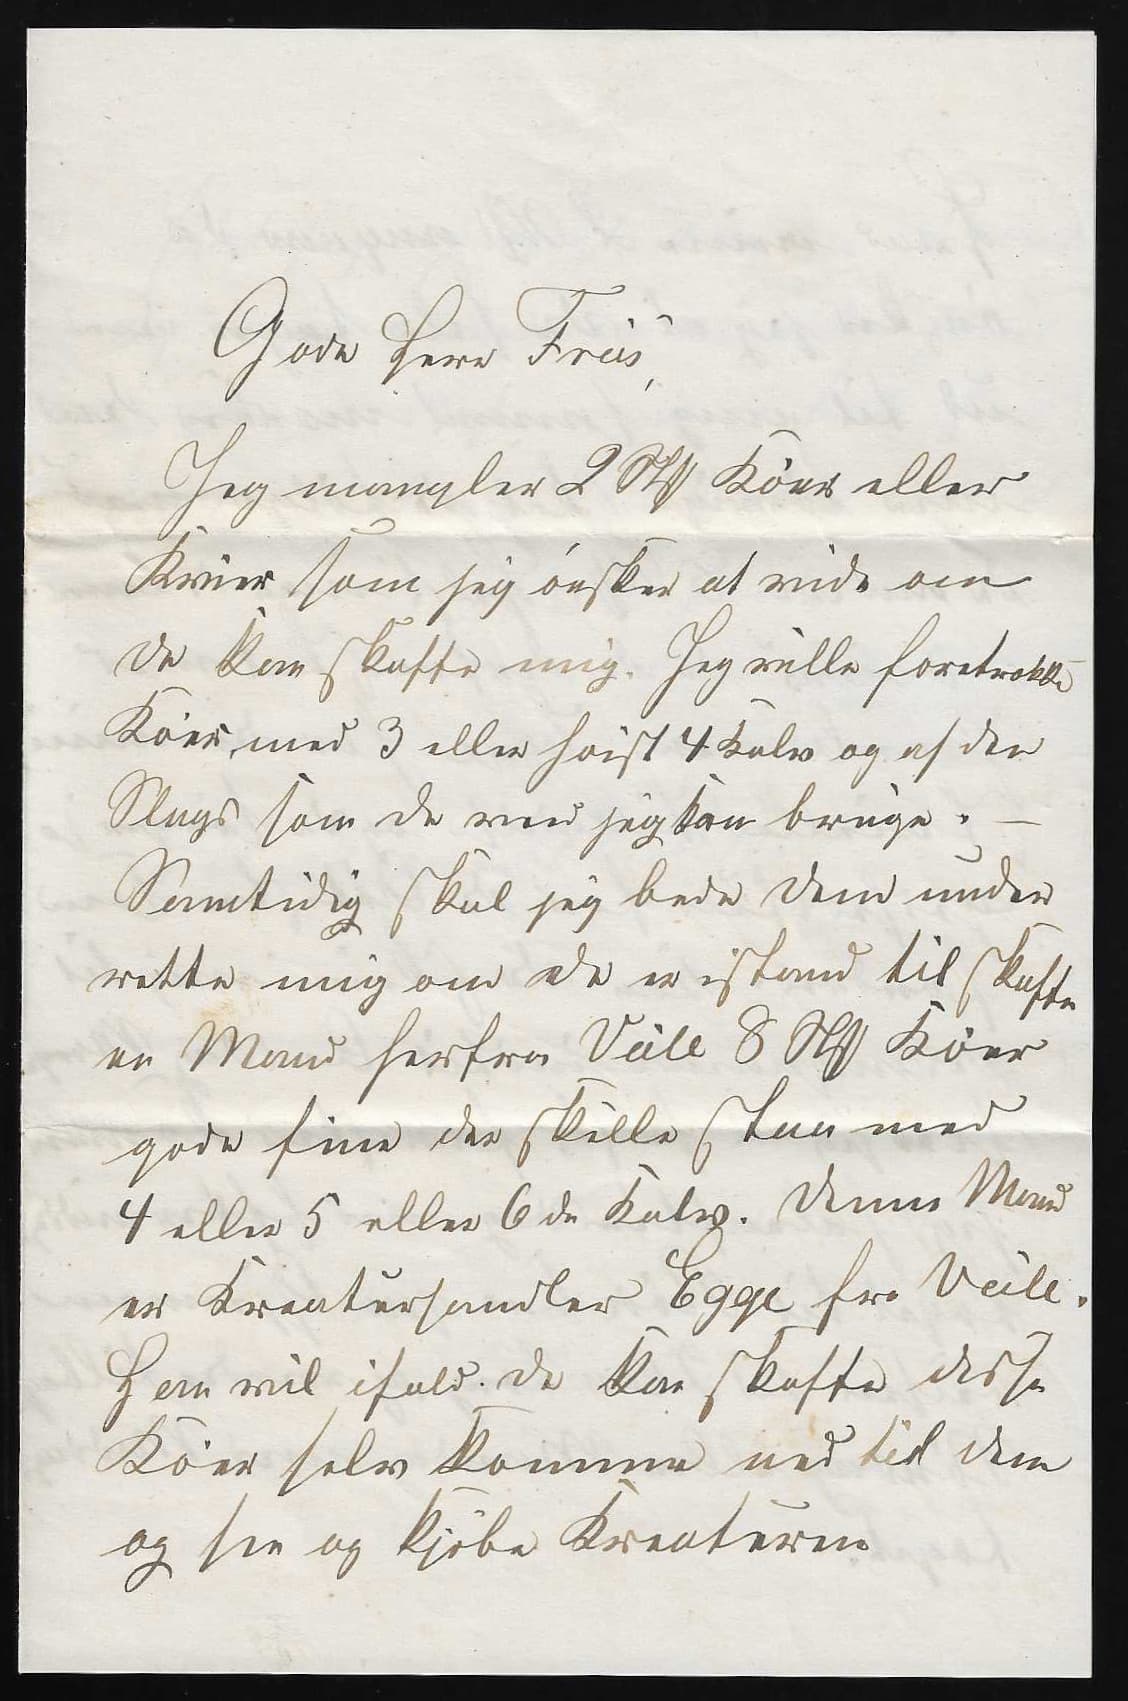 Gode Herr Friis,
Jeg mangler 2 Stk Köer eller
Kvier som jeg önsker at vide om
De kan skaffe mig. Jeg vilde foretrække
Köer med 3 eller höist 4 Kalv og af den
Slags som De veed jeg kan bruge. —
Samtidig skal jeg bede Dem under
rette mig om De er istand til skaffe
en Mand herfra Veile 8 Stk Köer
gode fine der skulle staa med
4 eller 5 eller 6 de Kalv. Denne Mand
er Kreaturhandler Egge fra Veile.
Han vil ifald De kan skaffe disse
Köer selv komme ned til Dem
og see og kjöbe Kreaturene